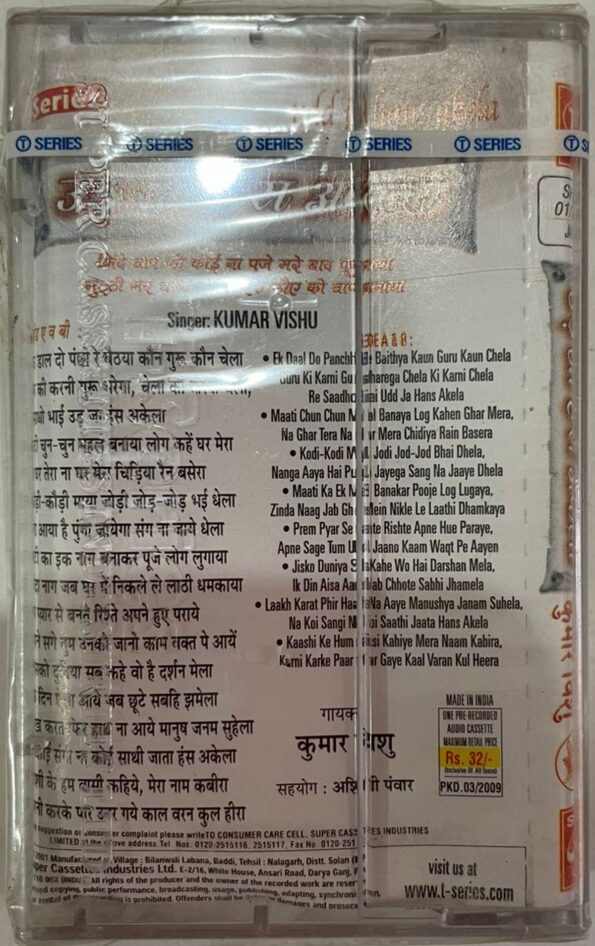 Series
T SERIES T SERIES T SERIES T SERIES T SERIES T
udd ja hans akela
जिंदे बाप को कोई ना पूजे मरे बाद
Singer: KUMAR VISHU
ड ए व बी
SIDE A & B:
डाल दो पंछी रे बैठया कौन गुरू कौन चेला
की करनी गुरू भरेगा, चेला
भाई उड़ जा हंस अकेला
चुन-चुन महल बनाया लोग कहें घर मेरा
घर तेरा ना घर मेरा चिड़िया रैन बसेरा
डी-कौड़ी माया जोड़ी जोड़-जोड़ भई धेला
आया है पुंगा जायेगा संग ना जाये धेला
का इक नाग बनाकर पूजे लोग लुगाया
नाग जब घर में निकले ले लाठी धमकाया
प्यार से बनते रिश्ते अपने हुए पराये
सगे तुम उनको जानो काम वक्त पे आयें
को दुनिया सब कहे वो है दर्शन मेला
दिन ऐसा आये जब छूटे सबहि झमेला
करत फिर हाथ ना आये मानुष जनम सुहेला
कोई संगी ना कोई साथी जाता हंस अकेला
के हम वासी कहिये, मेरा नाम कबीरा
नी करके पार उतर गये काल वरन कुल हीरा
• Ek Daal Do Panchhi Re Baithya Kaun Guru Kaun Chela
Guru Ki Karni Guru Bharega Chela Ki Karni Chela
Re Saadho Bhai Udd Ja Hans Akela
• Maati Chun Chun Mahal Banaya Log Kahen Ghar Mera,
Na Ghar Tera Na Ghar Mera Chidiya Rain Basera
• Kodi-Kodi Maya Jodi Jod-Jod Bhai Dhela,
Nanga Aaya Hai Jayega Sang Na Jaaye Dhela
• Maati Ka Ek Banakar Pooje Log Lugaya,
Zinda Naag Jab Ghar Mein Nikle Le Laathi Dhamkaya
• Prem Pyar Se Bante Rishte Apne Hue Paraye,
Apne Sage Tum Jaano Kaam Waqt Pe Aayen
• Jisko Duniya Sab Kahe Wo Hai Darshan Mela,
Ik Din Aisa Aaye Jab Chhote Sabhi Jhamela
• Laakh Karat Phir Haath Na Aaye Manushya Janam Suhela,
Na Koi Sangi Na Koi Saathi Jaata Hans Akela
• Kaashi Ke Hum Vaasi Kahiye Mera Naam Kabira,
Karni Karke Paar Utar Gaye Kaal Varan Kul Heera
गायक
कुमार विशु
सहयोग : अश्विनी पंवार
MADE IN INDIA
ONE PRE-RECORDED
AUDIO CASSETTE
MAXIMUM RETAIL PRICE
Rs. 32/-
(Inclusive Of All Taxes)
PKD. 03/2009
suggestion or consumer complaint please write TO CONSUMER CARE CELL, SUPER CASSETTES INDUSTRIES
LIMITED at the above address Tel. Nos. 0120-2515116, 2515117, Fax No. 0120-251
2001 Manufactured at Village : Bilanwali Labana, Baddi, Tehsil : Nalagarh, Distt. Solan
Super Cassettes Industries Ltd. E-2/16, White House, Ansari Road, Darya Ganj,
All rights of the producer and the owner of the recorded work are reser
copying, public performance, broadcasting, usage, publishing, adapting, synchroni
rental of recording is prohibited. Offenders shall be damages and prosec
visit us at
www.t-series.com
कुमार विशु